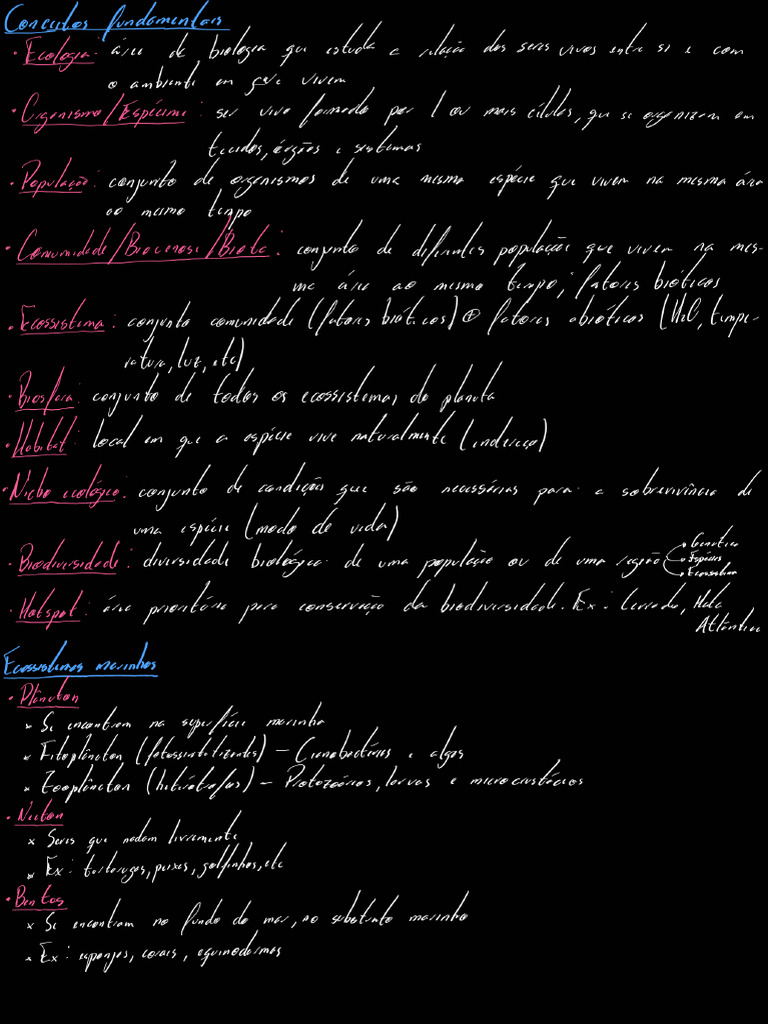 Conceitos fundamentais
• Ecologia: área de biologia que estuda a relação dos seres vivos entre si e com
o ambiente em que vivem
• Organismo/Espécime: ser vivo formado por 1 ou mais células, que se organizam em
tecidos, órgãos e sistemas
• População: conjunto de organismos de uma mesma espécie que vivem na mesma área
ao mesmo tempo
• Comunidade/Biocenose/Biota: conjunto de diferentes populações que vivem na mes-
ma área ao mesmo tempo; fatores bióticos
• Ecossistema: conjunto comunidade (fatores bióticos) ⊕ fatores abióticos (H2O, tempe-
ratura, luz, etc)
• Biosfera: conjunto de todos os ecossistemas do planeta
• Habitat: local em que a espécie vive naturalmente (endereço)
• Nicho ecológico: conjunto de condições que são necessárias para a sobrevivência de
uma espécie (modo de vida)
• Biodiversidade: diversidade biológica de uma população ou de uma região
• Genética
• Espécies
• Ecossistema
• Hotspot: área prioritária para conservação da biodiversidade. Ex: Cerrado, Mata
Atlântica
Ecossistemas marinhos
• Plâncton
× Se encontram na superfície marinha
× Fitoplâncton (fotossintetizantes) — Cianobactérias e algas
× Zooplâncton (heterótrofos) — Protozoários, larvas e microcrustáceos
• Nécton
× Seres que nadam livremente
× Ex: tartarugas, peixes, golfinhos, etc
• Bentos
× Se encontram no fundo do mar, no substrato marinho
× Ex: esponjas, corais, equinodermos